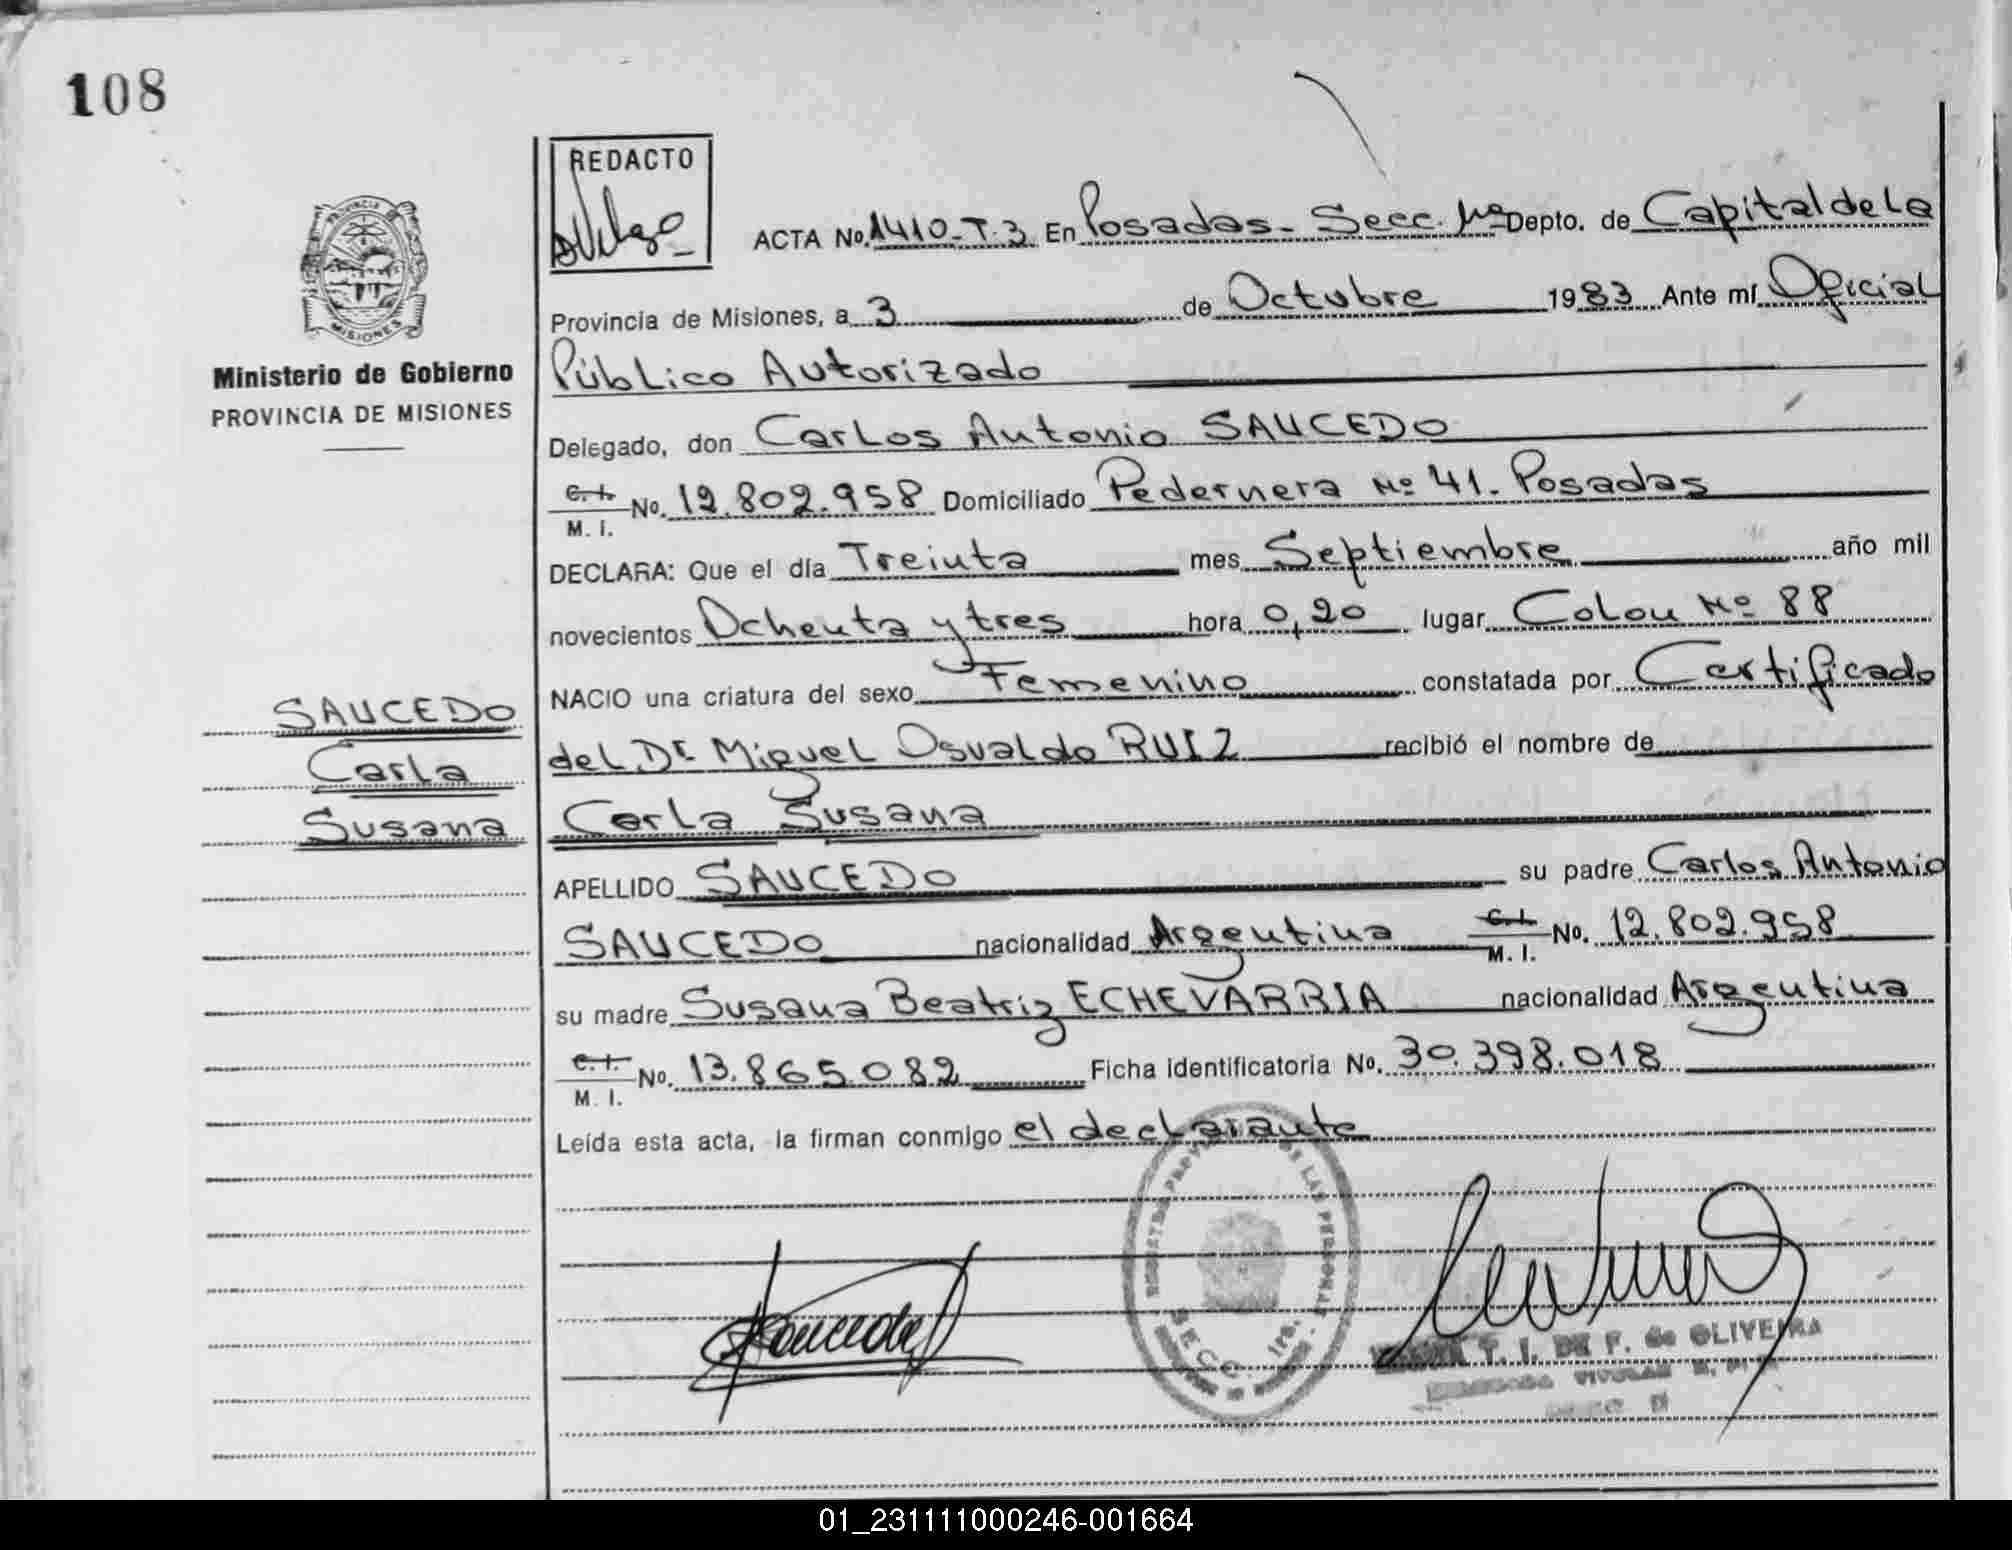 108
REDACTO
ACTA No. 1410-T.3. En Posadas - Secc. 1ra Depto. de Capital de la
Provincia de Misiones, a 3 de Octubre 1983 Ante mí Oficial
Público Autorizado
Delegado, don Carlos Antonio SAUCEDO
C.I. M.I. No. 12.802.958 Domiciliado Pedernera Nº 41. Posadas
DECLARA: Que el día Treinta mes Septiembre año mil
novecientos Ochenta y tres hora 0,20 lugar Colon Nº 88
NACIO una criatura del sexo Femenino constatada por Certificado
del Dr Miguel Osvaldo RUIZ recibió el nombre de
Carla Susana
APELLIDO SAUCEDO su padre Carlos Antonio
SAUCEDO nacionalidad Argentina C.I. M.I. No. 12.802.958
su madre Susana Beatriz ECHEVARRIA nacionalidad Argentina
C.I. M.I. No. 13.865.082 Ficha identificatoria No. 30.398.018
Leída esta acta, la firman conmigo el declarante
PROVINCIA
MISIONES
Ministerio de Gobierno
PROVINCIA DE MISIONES
SAUCEDO
Carla
Susana
DE LAS PERSONAS
SECC. 1ra.
T. I. DE F. de OLIVEIRA
01_231111000246-001664